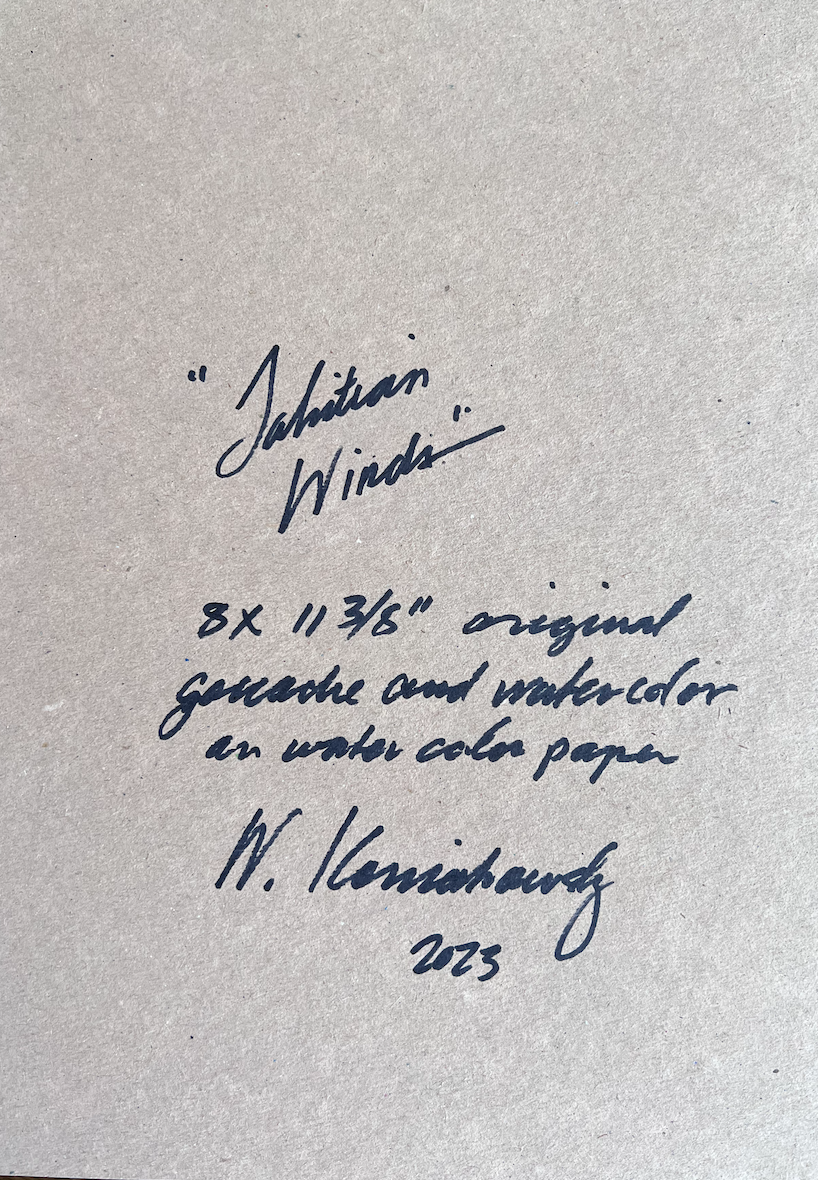 "Tahitian
Winds"
8x 11 3/8" original
gouache and watercolor
on water color paper
W.
2023